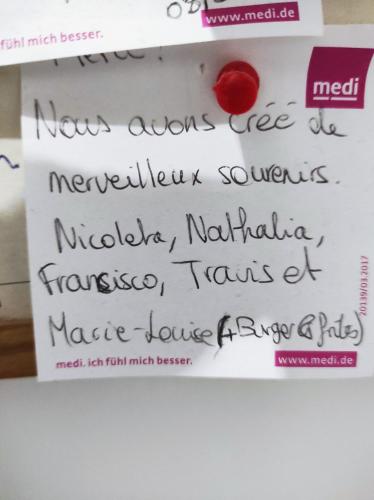 08/
www.medi.de
fühl mich besser.
Merci!
medi
Nous avons créé de
merveilleux souvenirs.
Nicoleta, Nathalia,
Francisco, Travis et
Marie-Louise (+Burger & frites)
20139/03.2017
medi. ich fühl mich besser.
www.medi.de